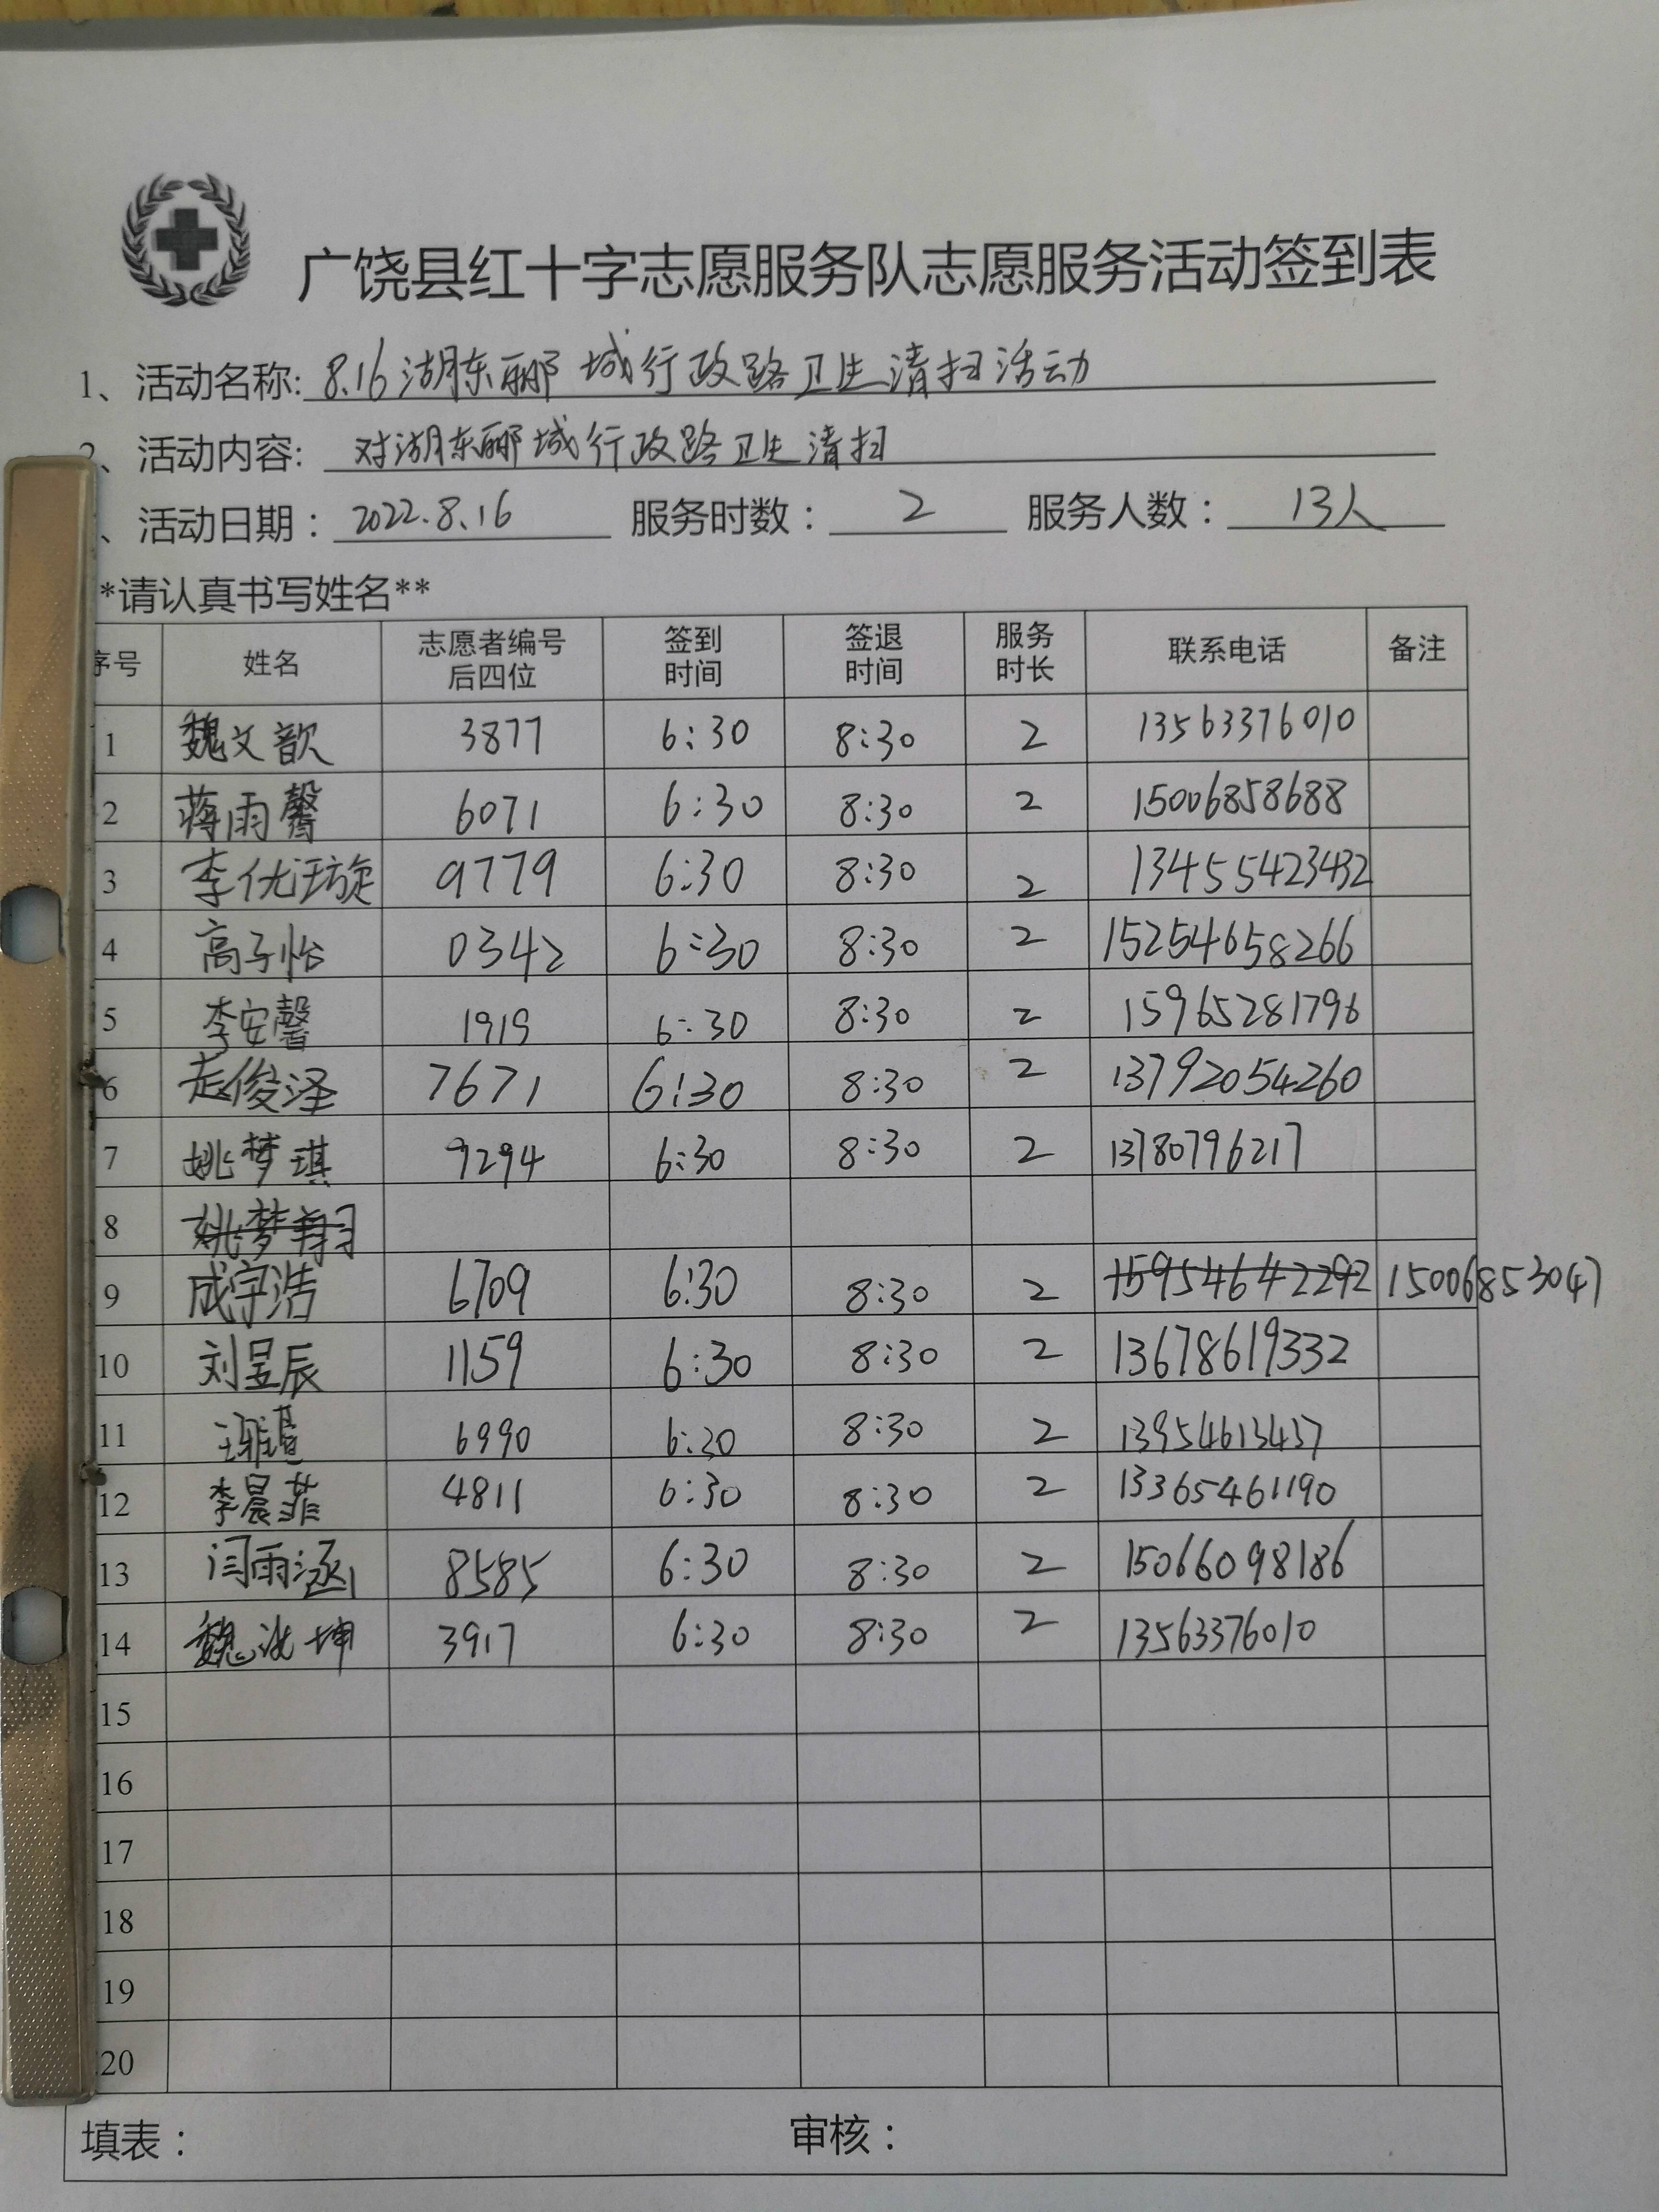 广饶县红十字志愿服务队志愿服务活动签到表
1、活动名称: 8.16湖东郦城行政路卫生清扫活动
2、活动内容: 对湖东郦城行政路卫生清扫
、活动日期： 2022.8.16 服务时数： 2 服务人数： 13人
*请认真书写姓名**
序号 姓名 志愿者编号后四位 签到时间 签退时间 服务时长 联系电话 备注
1 魏文歆 3877 6:30 8:30 2 13563376010
2 蒋雨馨 6071 6:30 8:30 2 15006858688
3 李优璇 9779 6:30 8:30 2 13455423432
4 高子怡 0342 6:30 8:30 2 15254658266
5 李安馨 1919 6:30 8:30 2 15965281796
6 赵俊泽 7671 6:30 8:30 2 13792054260
7 姚梦琪 9294 6:30 8:30 2 13780796217
8 姚梦
9 成宇浩 6709 6:30 8:30 2 15954642292 15006853047
10 刘昱辰 1159 6:30 8:30 2 13678619332
11 6990 6:30 8:30 2 13954613437
12 李晨菲 4811 6:30 8:30 2 13365461190
13 闫雨涵 8585 6:30 8:30 2 15066098186
14 魏 坤 3917 6:30 8:30 2 13563376010
15
16
17
18
19
20
填表： 审核：